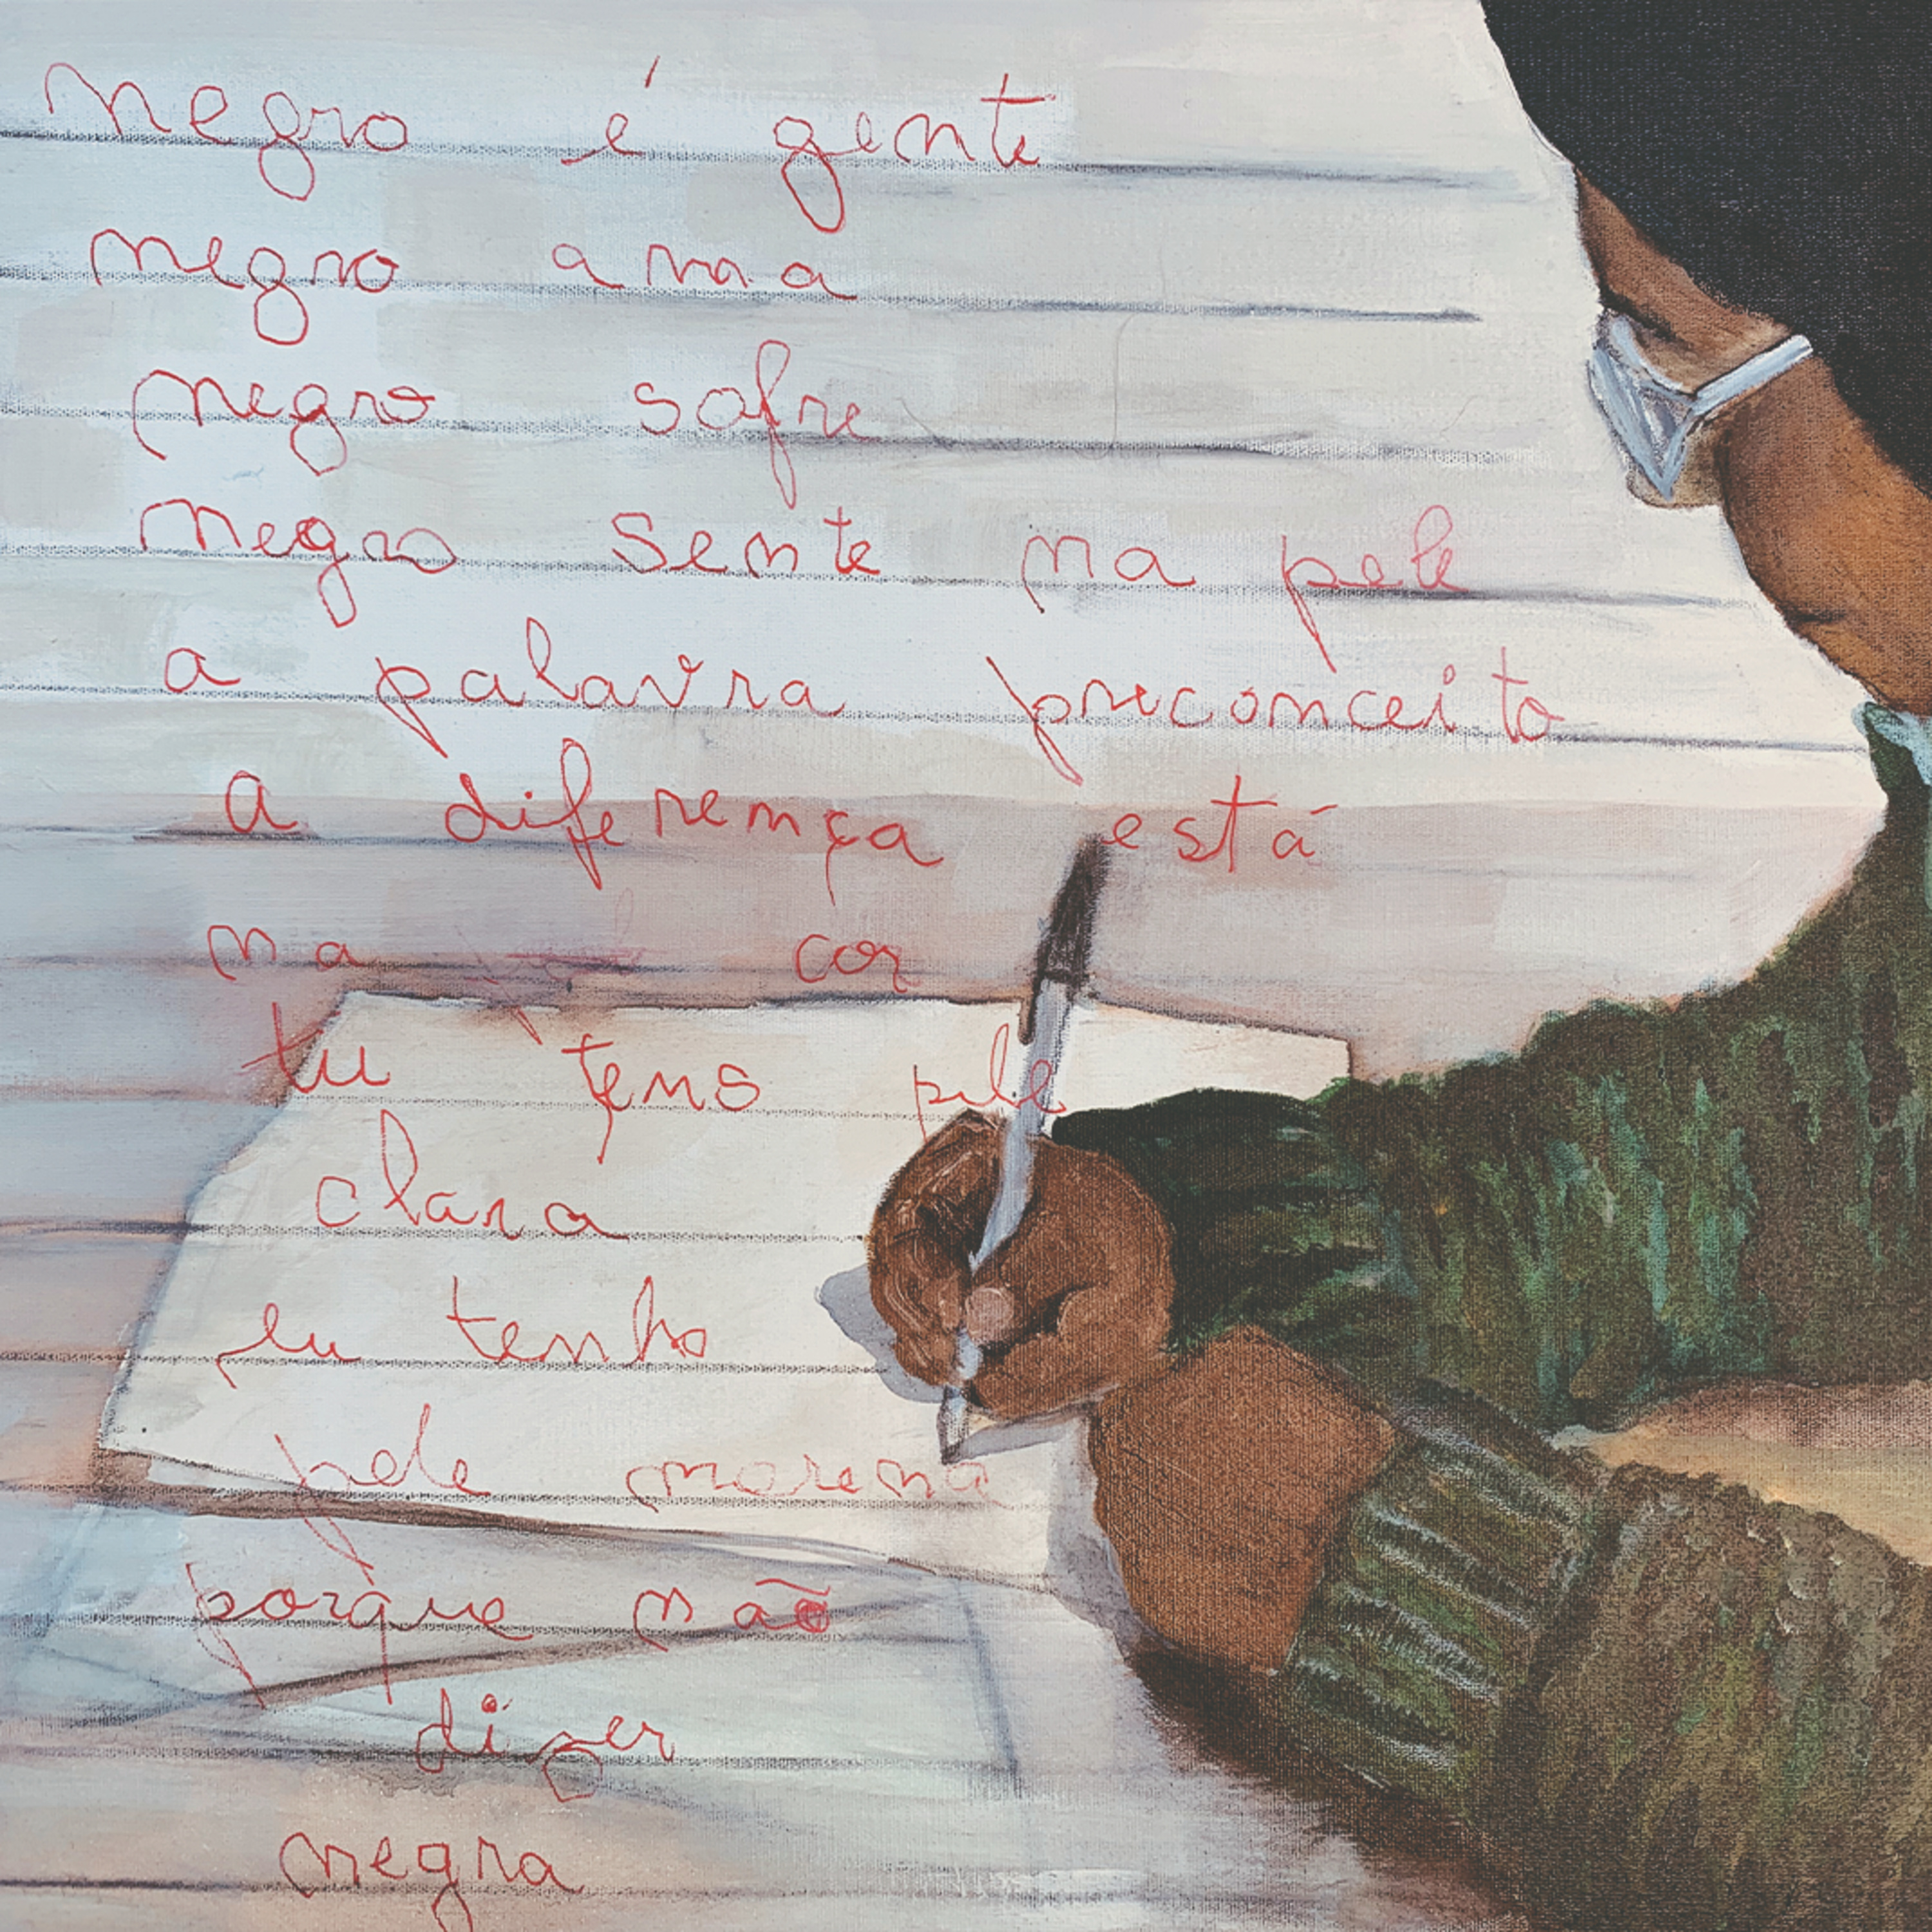 negro é gente
negro ama
negro sofre
negro sente na pele
a palavra preconceito
a diferença está
na cor
tu tens pele
clara
eu tenho
pele morena
porque não
dizer
negra